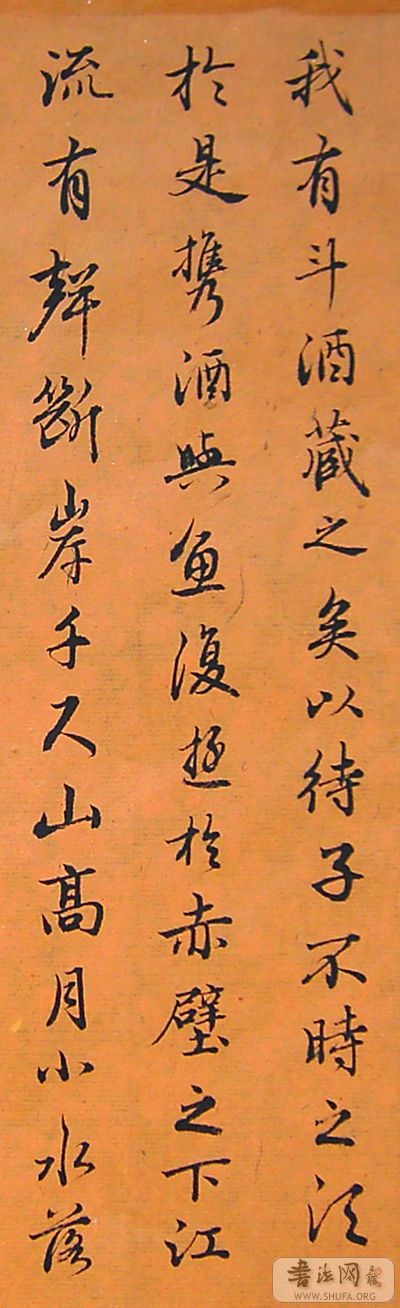 我有斗酒藏之矣以待子不時之須
於是携酒與魚復遊於赤壁之下江
流有聲斷岸千尺山髙月小水落
書法网
WWW.SHUFA.ORG